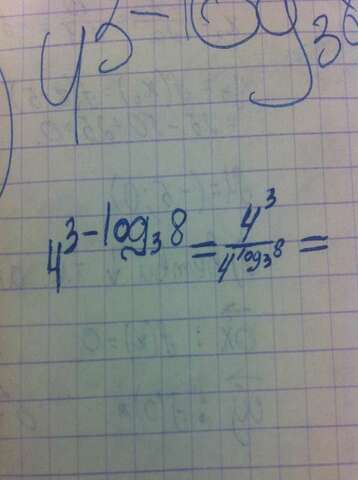 y³⁻ˡᵒᵍ₃⁸
4^{3-log₃8} = 4³/4^{log₃8} =